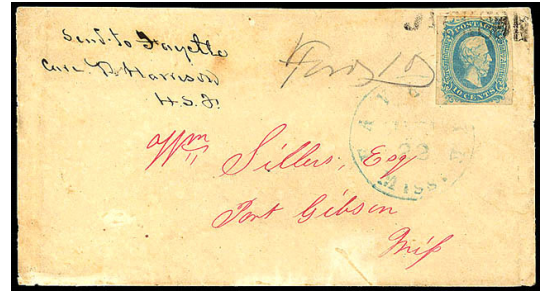 Send to Fayette
Care D. Harrison
H.S.F.
POSTAGE
10 CENTS
22
MISS
Wm Sillers, Esq
Port Gibson
Miſs